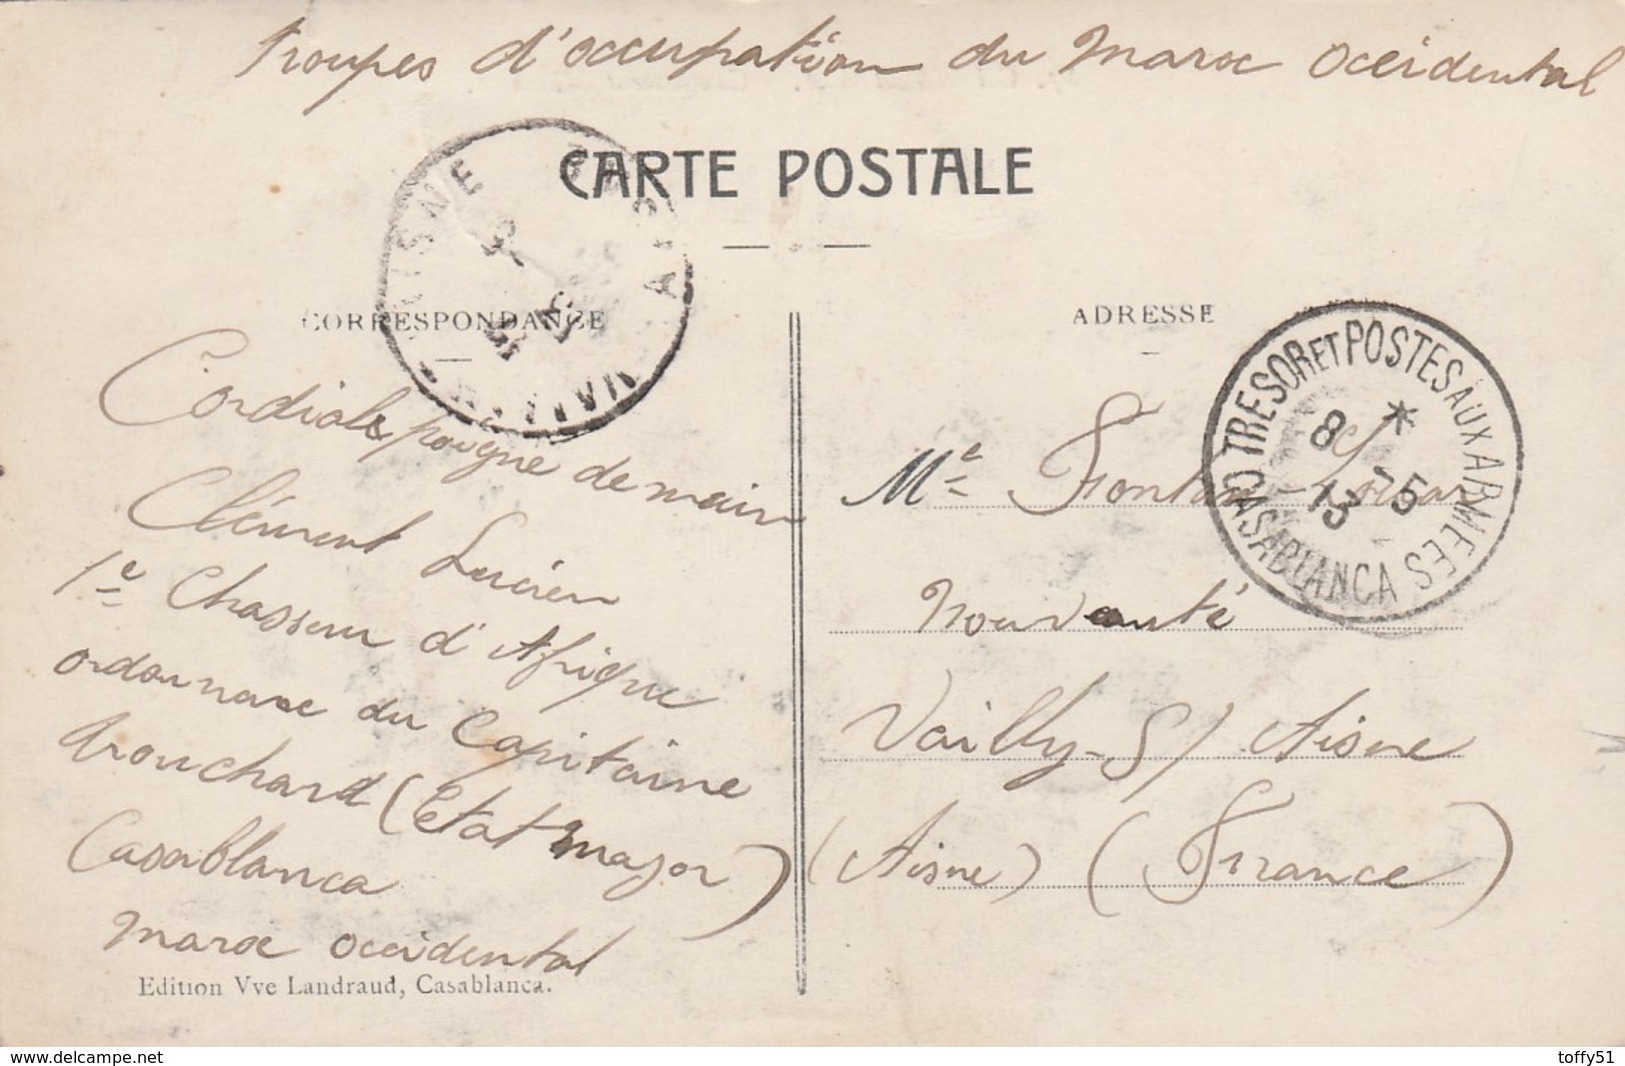 Troupes d'occupation du Maroc Occidental
CARTE POSTALE
AISNE
CORRESPONDANCE
ADRESSE
TRESOR ET POSTES AUX ARMEES
CASABLANCA
8 *
13 -5
Cordiale pougne de main
Clément Lucien
1e Chasseur d'Afrique
ordonnance du Capitaine
Trouchard (Etat major)
Casablanca
Maroc Occidental
Me Fontan
Nouveauté
Vailly-S/ Aisne
(Aisne) (France)
Edition Vve Landraud, Casablanca.
www.delcampe.net
toffy51